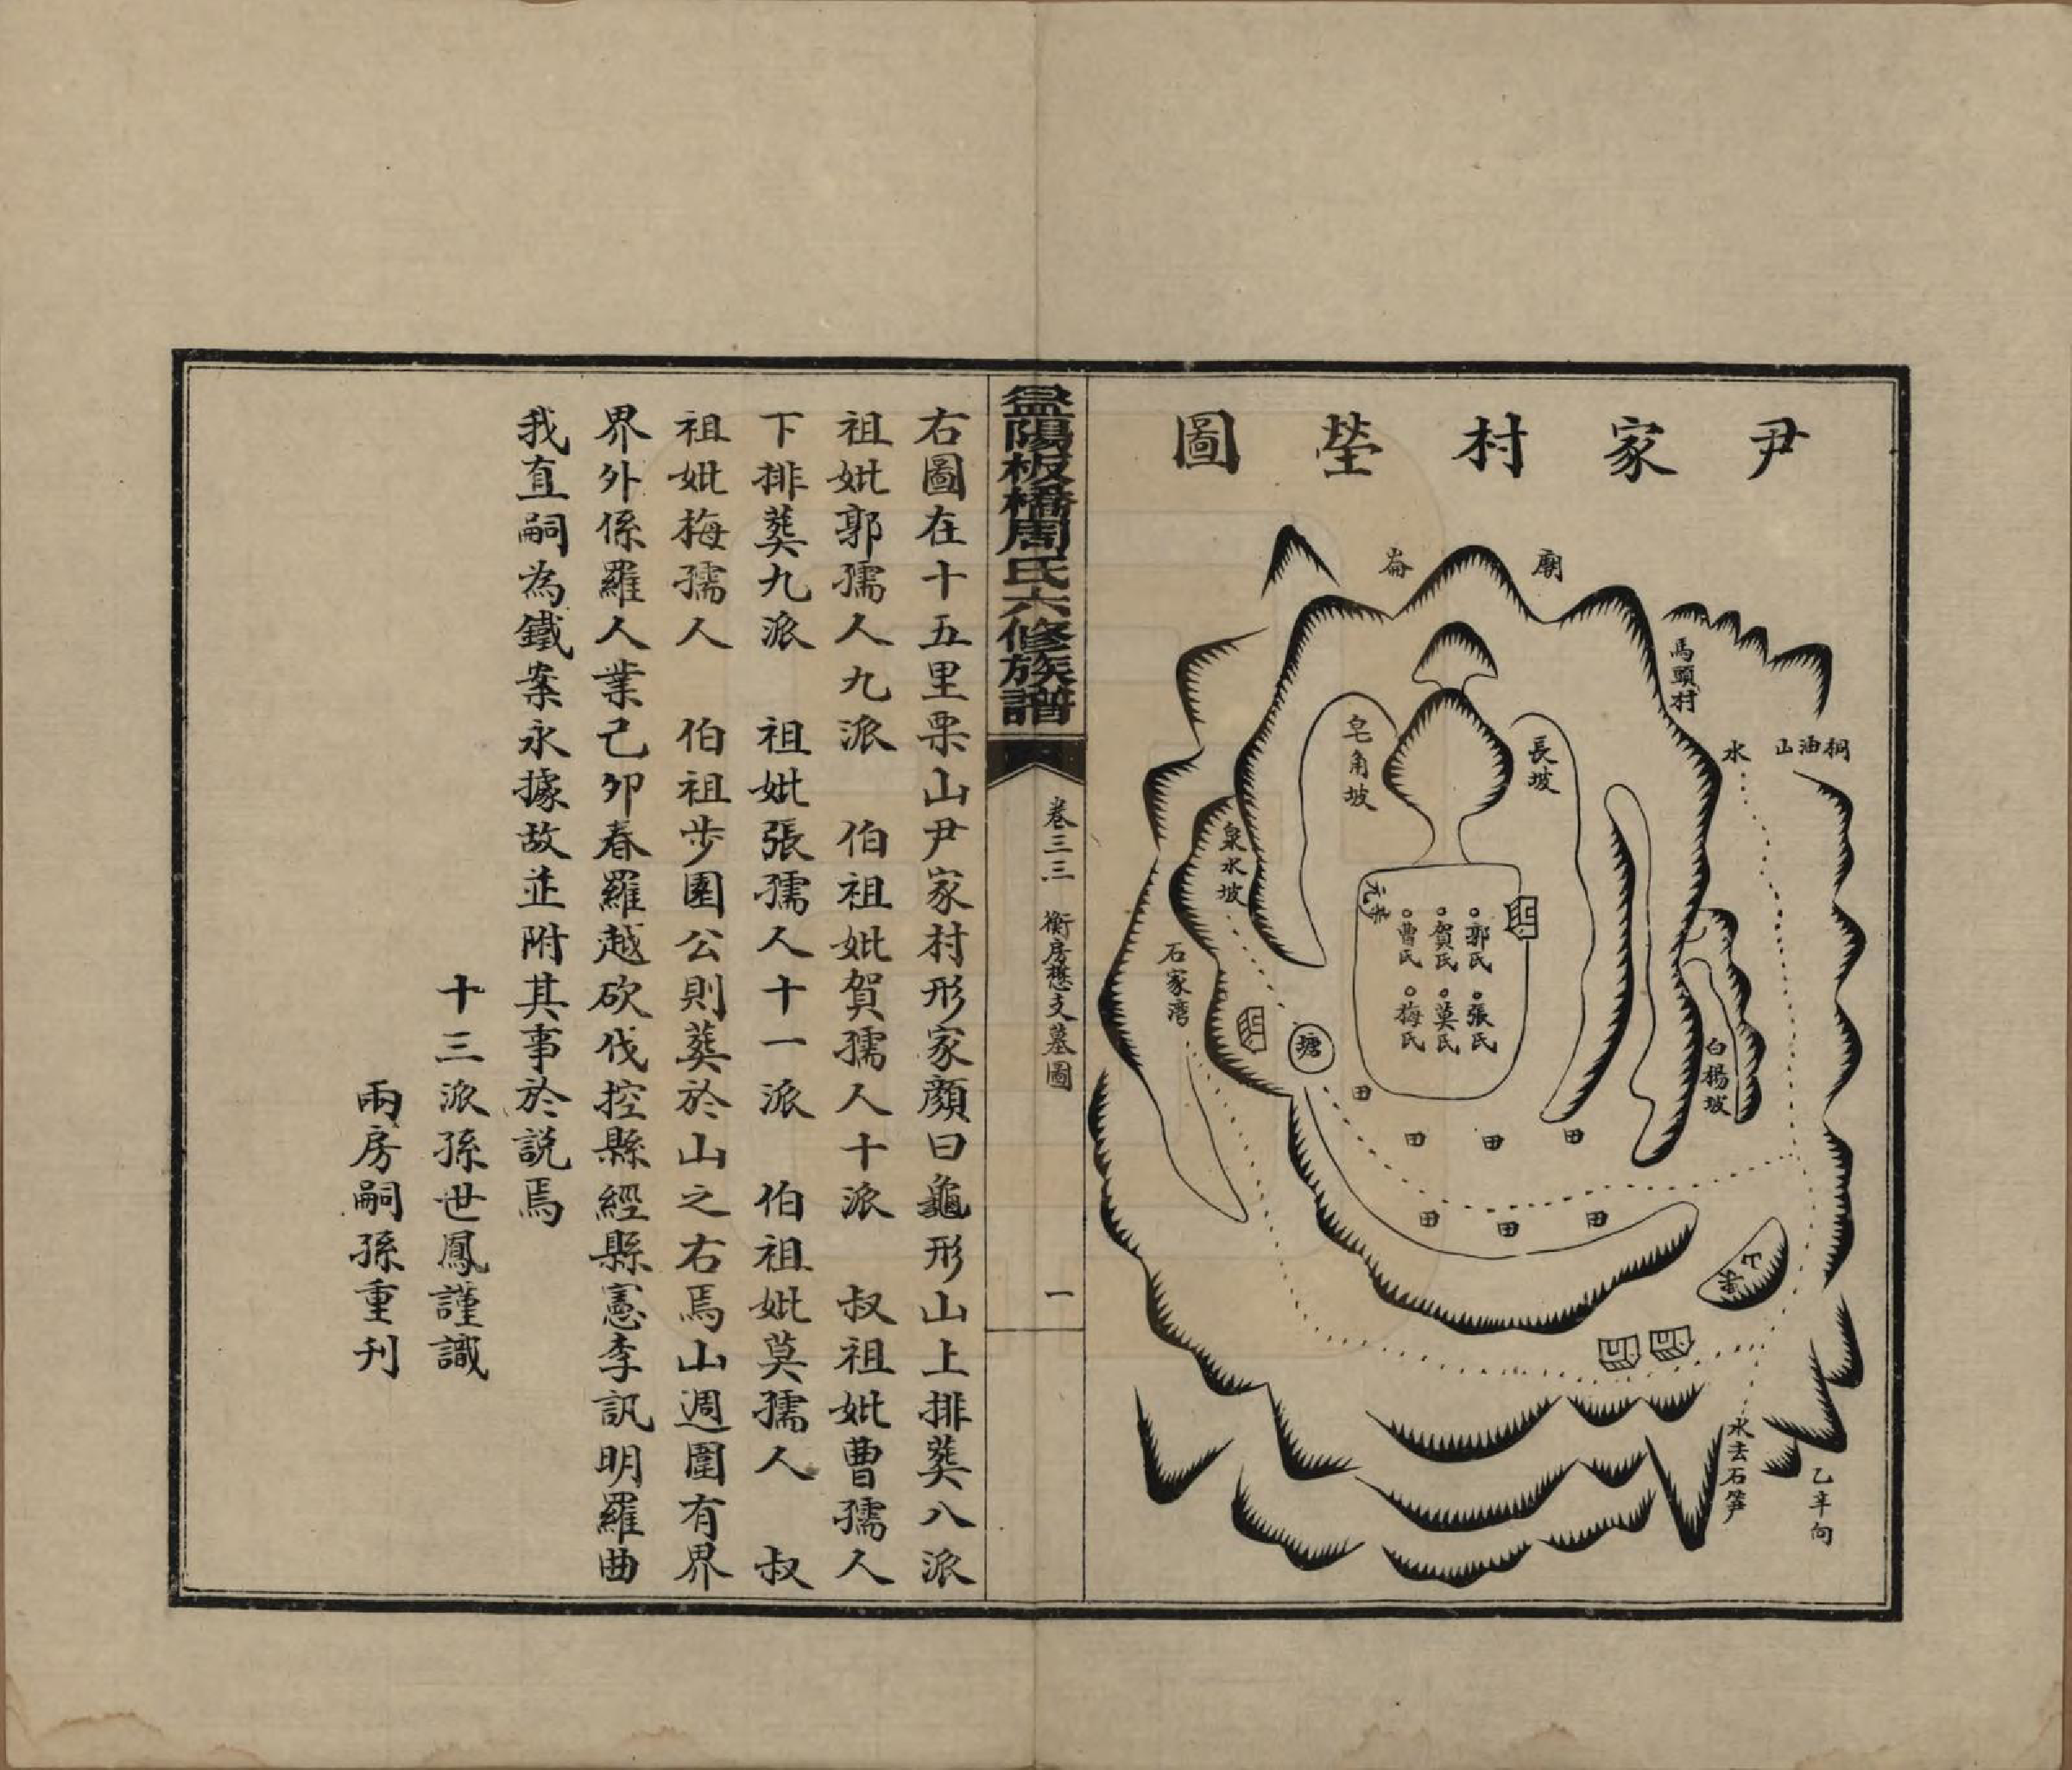 尹家村塋圖
廟崙
馬頭村
桐油山
水
長坡
皂角坡
泉水坡
石家湾
白楊坡
郭氏
賀氏
曹氏
張氏
莫氏
梅氏
塘
田
田
田
田
田
田
田
水去石笋
乙辛向
益陽板橋周氏六修族譜
卷三三 衡房懋支墓圖 一
右圖在十五里栗山尹家村形家顏曰龜形山上排葬八派
祖妣郭孺人九派 伯祖妣賀孺人十派 叔祖妣曹孺人
下排葬九派 祖妣張孺人十一派 伯祖妣莫孺人 叔
祖妣梅孺人 伯祖步園公則葬於山之右焉山週圍有界
界外係羅人業己卯春羅越砍伐控縣經縣憲李訊明羅曲
我直嗣為鐵案永據故並附其事於説焉
十三派孫世鳳謹識
兩房嗣孫重刊